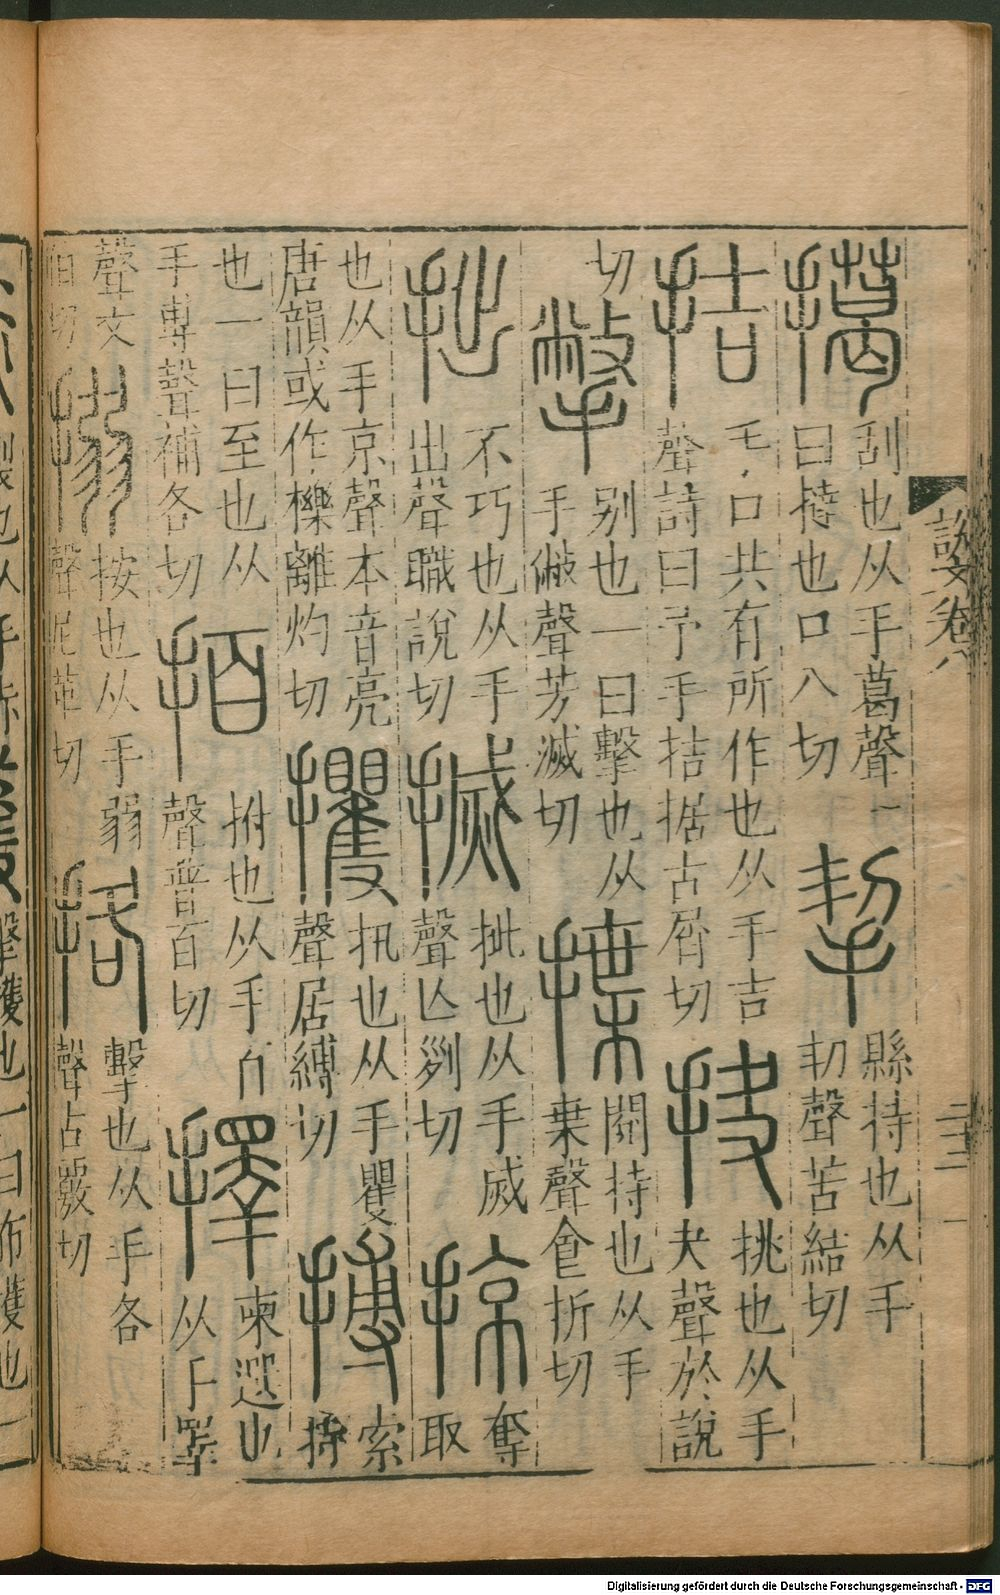 說文卷八
擖刮也从手葛聲一曰撻也口八切挈縣持也从手㓞聲苦結切
拮手口共有所作也从手吉聲詩曰予手拮据古屑切抉挑也从手夬聲於說
切撆別也一曰擊也从手敝聲芳滅切揲閱持也从手枼聲食折切
拙不巧也从手出聲職說切搣㧗也从手烕聲亾列切掠奪取
也从手京聲本音亮唐韻或作擽離灼切攫扟也从手矍聲居縛切搏索持
也一曰至也从手尃聲補各切拍拊也从手百聲普百切擇柬選也从手睪
聲丈伯切搦按也从手弱聲尼革切挌擊也从手各聲古覈切
擊擭也一曰布擭也一
Digitalisierung gefördert durch die Deutsche Forschungsgemeinschaft - DFG